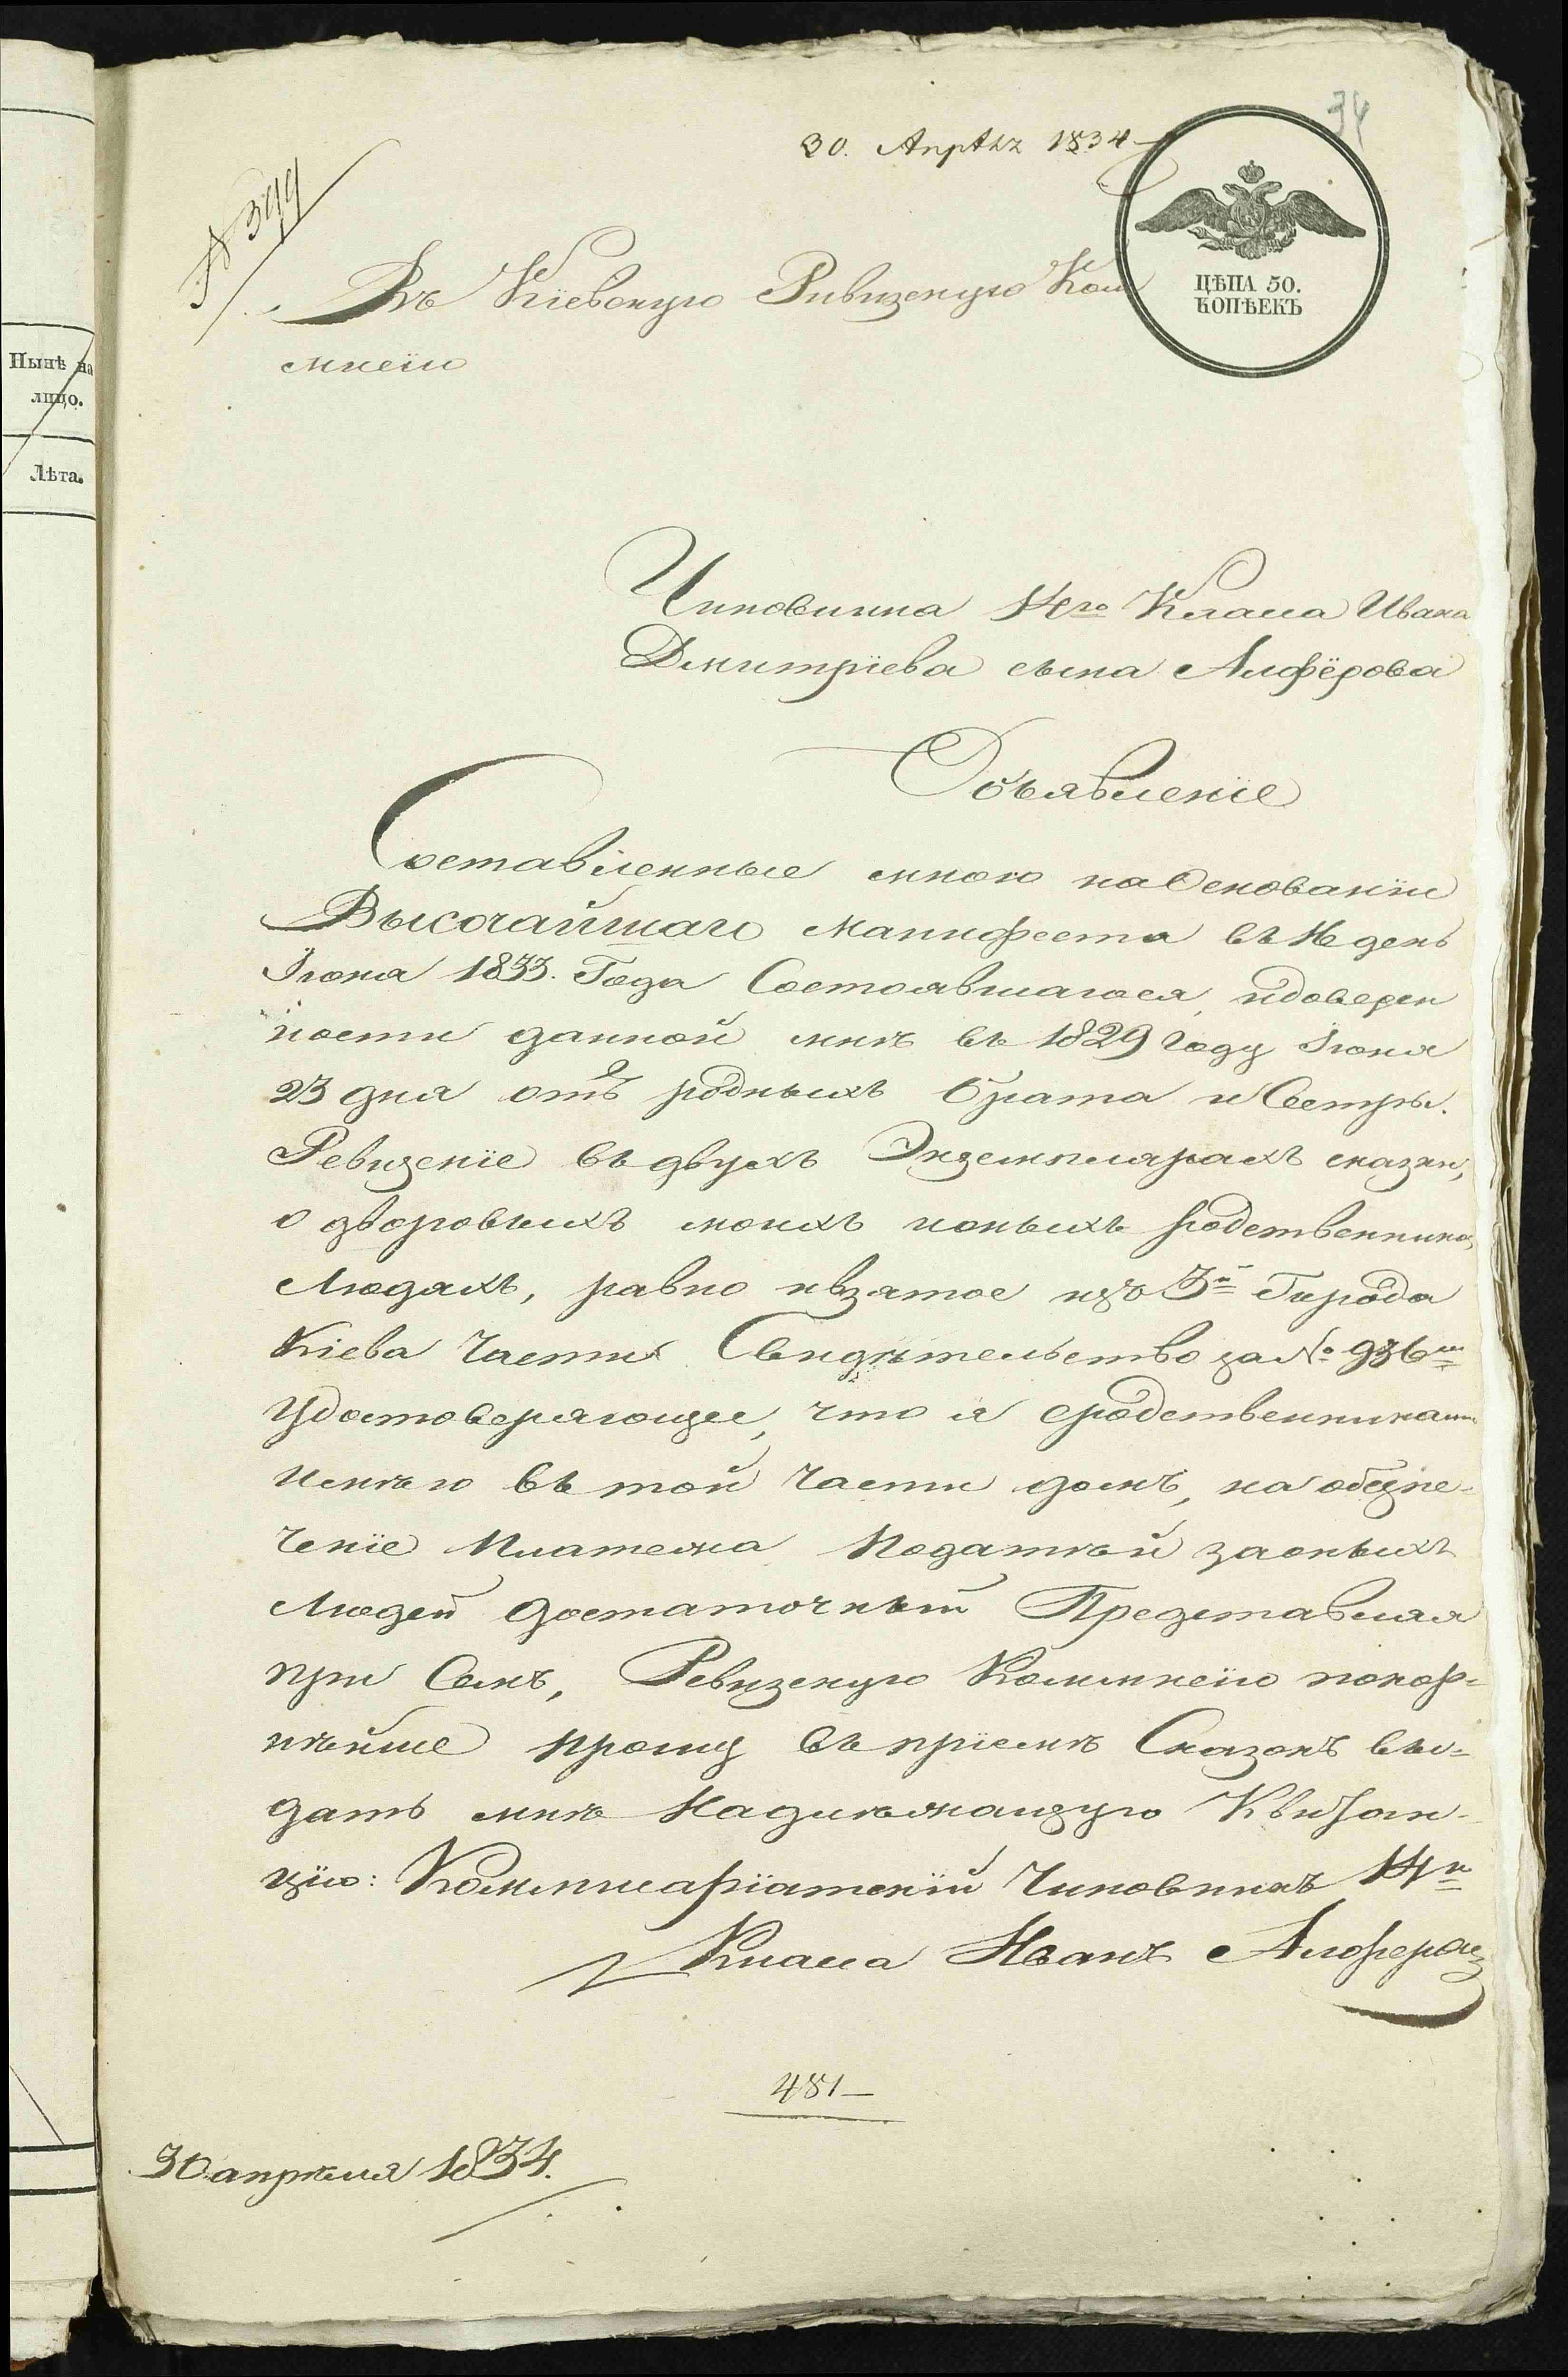 34
30. Апрѣлѧ 1834
№ 399
ЦѢПА 50.
КОПѢЕКЪ
Въ Кіевскую Ривизскую Ком
мисію
Нынѣ на
лицо.
Лѣта.
Чиновника 14го Класса Ивана
Дмитріева сына Алфёрова
Объявленіе
Составленные мною на Основаніи
Высочайшаго Манифеста въ 16 день
Іюня 1833. Года Состоявшагося, и доверен
ности данной мнѣ въ 1829 году Іюня
23 дня отъ родныхъ брата и Сестры.
Ревизскіе въ двухъ Экземплярахъ сказки,
о дворовыхъ моихъ и оныхъ родственнико
Людяхъ, равно и взятое изъ 3й Города
Кіева Части Свидѣтельство за № 936м
Удостоверяющее, что я с родственниками
имѣю въ той части домъ, на обезпе-
ченіе Платежа Податѣй за оныхъ
Людей достаточный Представляя
при Семъ, Ревизскую Коммисію покор-
нѣйше прошу въ пріемѣ Сказокъ вы-
дать мнѣ Надлѣжащую Квитан-
цію: Коммисаріатскій Чиновникъ 14го
Класса Иванъ Алферов
481
30 апрѣля 1834.